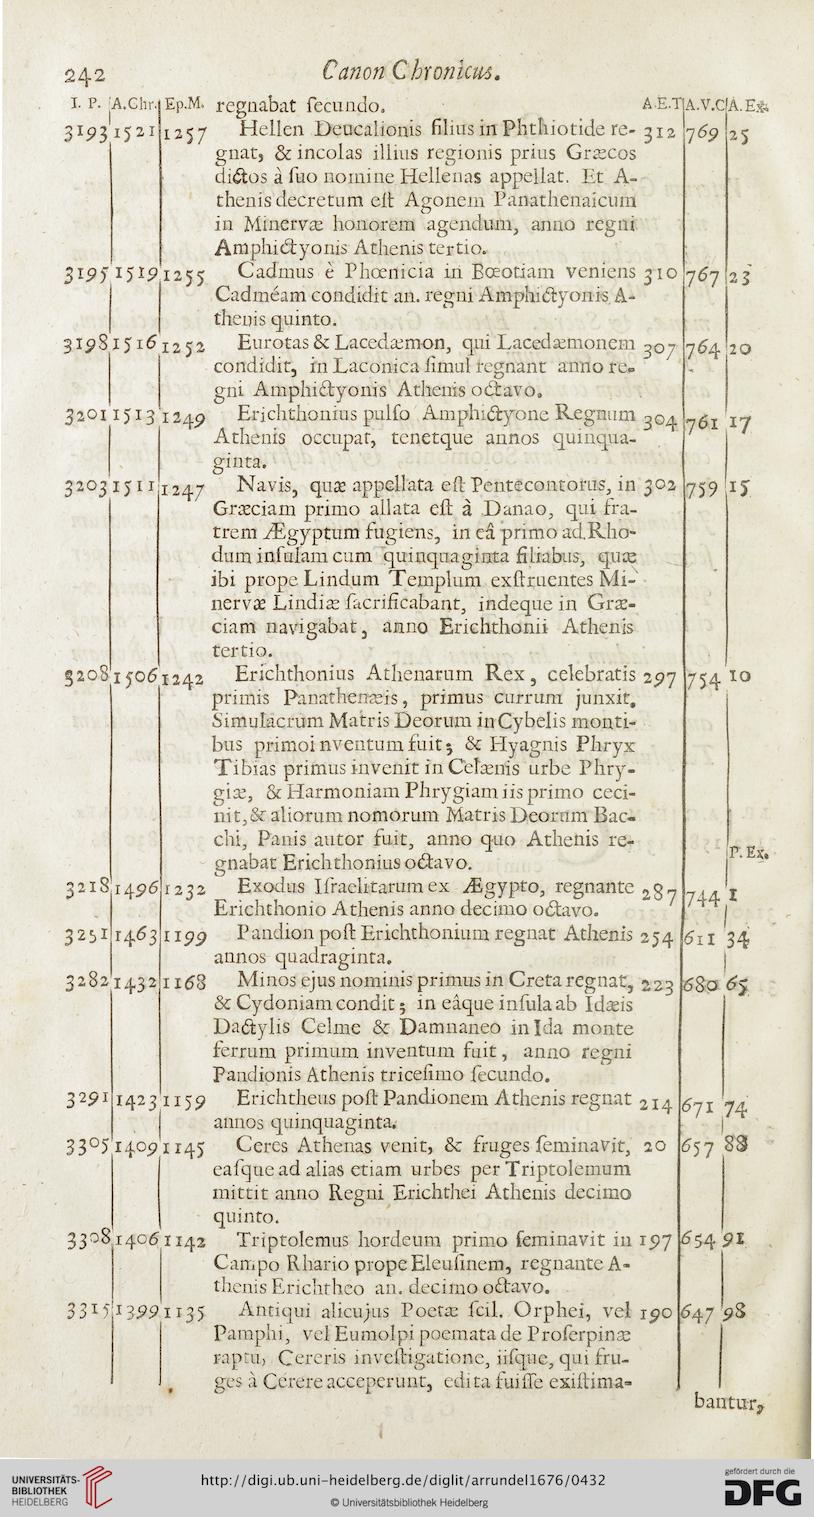 242 Canon Chronicus.
I. P. A.Chr. Ep.M. regnabat ſecundo. A.E.T A.V.C A.Ex.
3193 1521 1257 Hellen Deucalionis filius in Phthiotide re- 312 769 25
gnat, & incolas illius regionis prius Græcos
dictos à ſuo nomine Hellenas appellat. Et A-
thenis decretum eſt Agonem Panathenaicum
in Minervæ honorem agendum, anno regni
Amphictyonis Athenis tertio.
3195 1519 1255 Cadmus è Phœnicia in Bœotiam veniens 310 767 23
Cadméam condidit an. regni Amphictyonis A-
thenis quinto.
3198 1516 1252 Eurotas & Lacedæmon, qui Lacedæmonem 307 764 20
condidit, in Laconica ſimul regnant anno re-
gni Amphictyonis Athenis octavo.
3201 1513 1249 Erichthonius pulſo Amphictyone Regnum 304 761 17
Athenis occupat, tenetque annos quinqua-
ginta.
3203 1511 1247 Navis, quæ appellata eſt Pentecontorus, in 302 759 15
Græciam primo allata eſt à Danao, qui fra-
trem Ægyptum fugiens, in eâ primo ad Rho-
dum inſulam cum quinquaginta filiabus, quæ
ibi prope Lindum Templum exſtruentes Mi-
nervæ Lindiæ ſacrificabant, indeque in Græ-
ciam navigabat, anno Erichthonii Athenis
tertio.
3208 1506 1242 Erichthonius Athenarum Rex, celebratis 297 754 10
primis Panathenæis, primus currum junxit.
Simulacrum Matris Deorum in Cybelis monti-
bus primo inventum fuit; & Hyagnis Phryx
Tibias primus invenit in Celænis urbe Phry-
giæ, & Harmoniam Phrygiam iis primo ceci-
nit, & aliorum nomorum Matris Deorum Bac-
chi, Panis autor fuit, anno quo Athenis re-
gnabat Erichthonius octavo. P. Ex.
3218 1496 1232 Exodus Iſraelitarum ex Ægypto, regnante 287 744 1
Erichthonio Athenis anno decimo octavo.
3251 1463 1199 Pandion poſt Erichthonium regnat Athenis 254 611 34
annos quadraginta.
3282 1432 1168 Minos ejus nominis primus in Creta regnat, 223 680 65
& Cydoniam condit; in eâque inſula ab Idæis
Dactylis Celme & Damnaneo in Ida monte
ferrum primum inventum fuit, anno regni
Pandionis Athenis triceſimo ſecundo.
3291 1423 1159 Erichtheus poſt Pandionem Athenis regnat 214 671 74
annos quinquaginta.
3305 1409 1145 Ceres Athenas venit, & fruges ſeminavit, 20 657 88
eaſque ad alias etiam urbes per Triptolemum
mittit anno Regni Erichthei Athenis decimo
quinto.
3308 1406 1142 Triptolemus hordeum primo ſeminavit in 197 654 91
Campo Rhario prope Eleuſinem, regnante A-
thenis Erichtheo an. decimo octavo.
3315 1399 1135 Antiqui alicujus Poetæ ſcil. Orphei, vel 190 647 98
Pamphi, vel Eumolpi poemata de Proſerpinæ
raptu, Cereris inveſtigatione, iiſque, qui fru-
ges à Cerere acceperunt, edita fuiſſe exiſtima-
bantur,
UNIVERSITÄTS-
BIBLIOTHEK
HEIDELBERG
http://digi.ub.uni-heidelberg.de/diglit/arrundel1676/0432
© Universitätsbibliothek Heidelberg
gefördert durch die
DFG